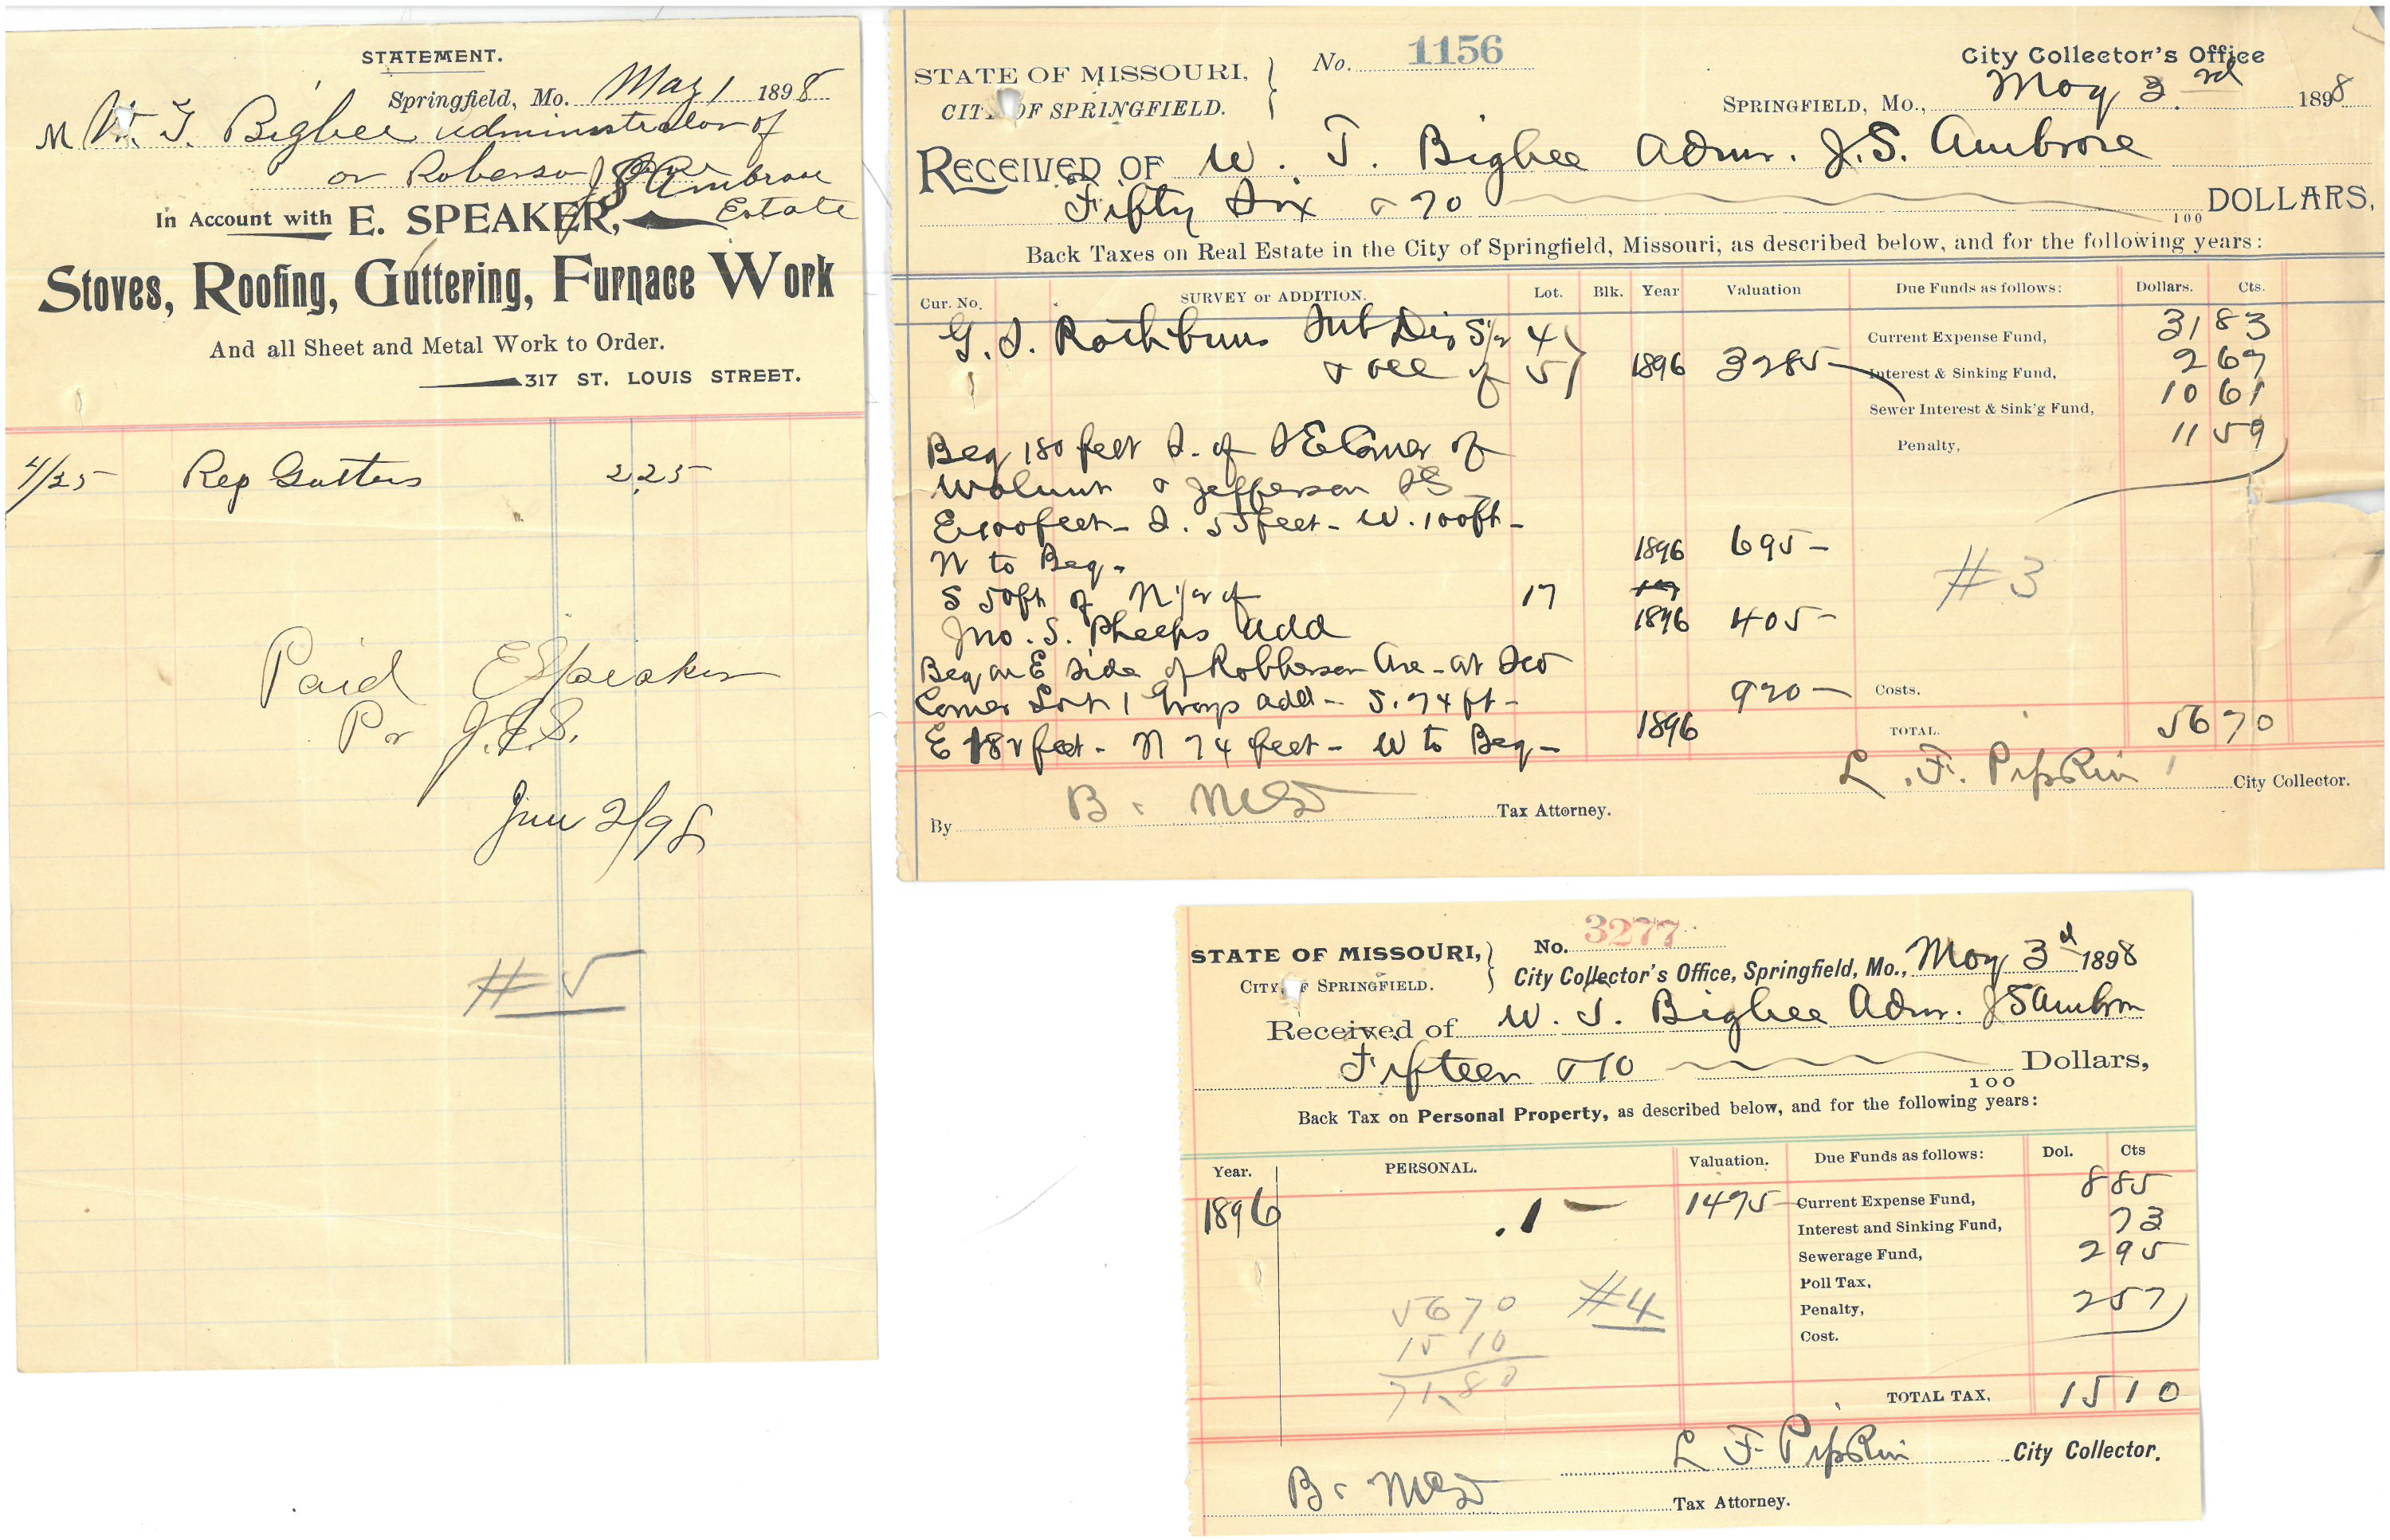 STATEMENT.
Springfield, Mo. May 1 1898
M W. T. Bigbee administrator of
on Roberson J S Ambrose
Estate
In Account with E. SPEAKER,
Stoves, Roofing, Guttering, Furnace Work
And all Sheet and Metal Work to Order.
317 ST. LOUIS STREET.
4/25 Rep Gutters 2.25
Paid E Speaker
Pr J.E.S.
June 2/98
#5
No. 1156
City Collector's Office
STATE OF MISSOURI,
CITY OF SPRINGFIELD.
SPRINGFIELD, Mo., May 3rd 1898
RECEIVED OF W. T. Bigbee Admr. J.S. Ambrose
Fifty Six & 70
100 DOLLARS,
Back Taxes on Real Estate in the City of Springfield, Missouri, as described below, and for the following years:
Cur. No. SURVEY or ADDITION. Lot. Blk. Year Valuation Due Funds as follows: Dollars. Cts.
G. S. Rathbuns Sub Div S½ 4 Current Expense Fund, 31 83
& all of 5 1896 3285 Interest & Sinking Fund, 2 67
Sewer Interest & Sink'g Fund, 10 61
Penalty, 11 59
Beg 180 feet S. of SE Corner of
Walnut & Jefferson St
E 100 feet - S. 55 feet - W. 100 ft -
N to Beg - 1896 695 -
#3
S 50 ft of N ½ of 17
Jno. S. Phelps Add 1896 405 -
Beg on E Side of Robberson Ave - at SW
Corner Lot 1 Grays add - S. 74 ft - 920 - Costs.
E 182 feet - N 74 feet - W to Beg - 1896 TOTAL. 56 70
L. F. Pipkin City Collector.
By B. McG Tax Attorney.
No. 3277
STATE OF MISSOURI,
CITY OF SPRINGFIELD.
City Collector's Office, Springfield, Mo., May 3d 1898
Received of W. T. Bigbee Admr. J S Ambrose
Fifteen & 10
100 Dollars,
Back Tax on Personal Property, as described below, and for the following years:
Year. PERSONAL. Valuation. Due Funds as follows: Dol. Cts
1896 .1 - 1475 - Current Expense Fund, 8 85
Interest and Sinking Fund, 73
Sewerage Fund, 2 95
Poll Tax,
Penalty, 2 57
Cost.
56 70 #4
15 10
71.80
TOTAL TAX, 15 10
L F Pipkin City Collector.
B. McG Tax Attorney.